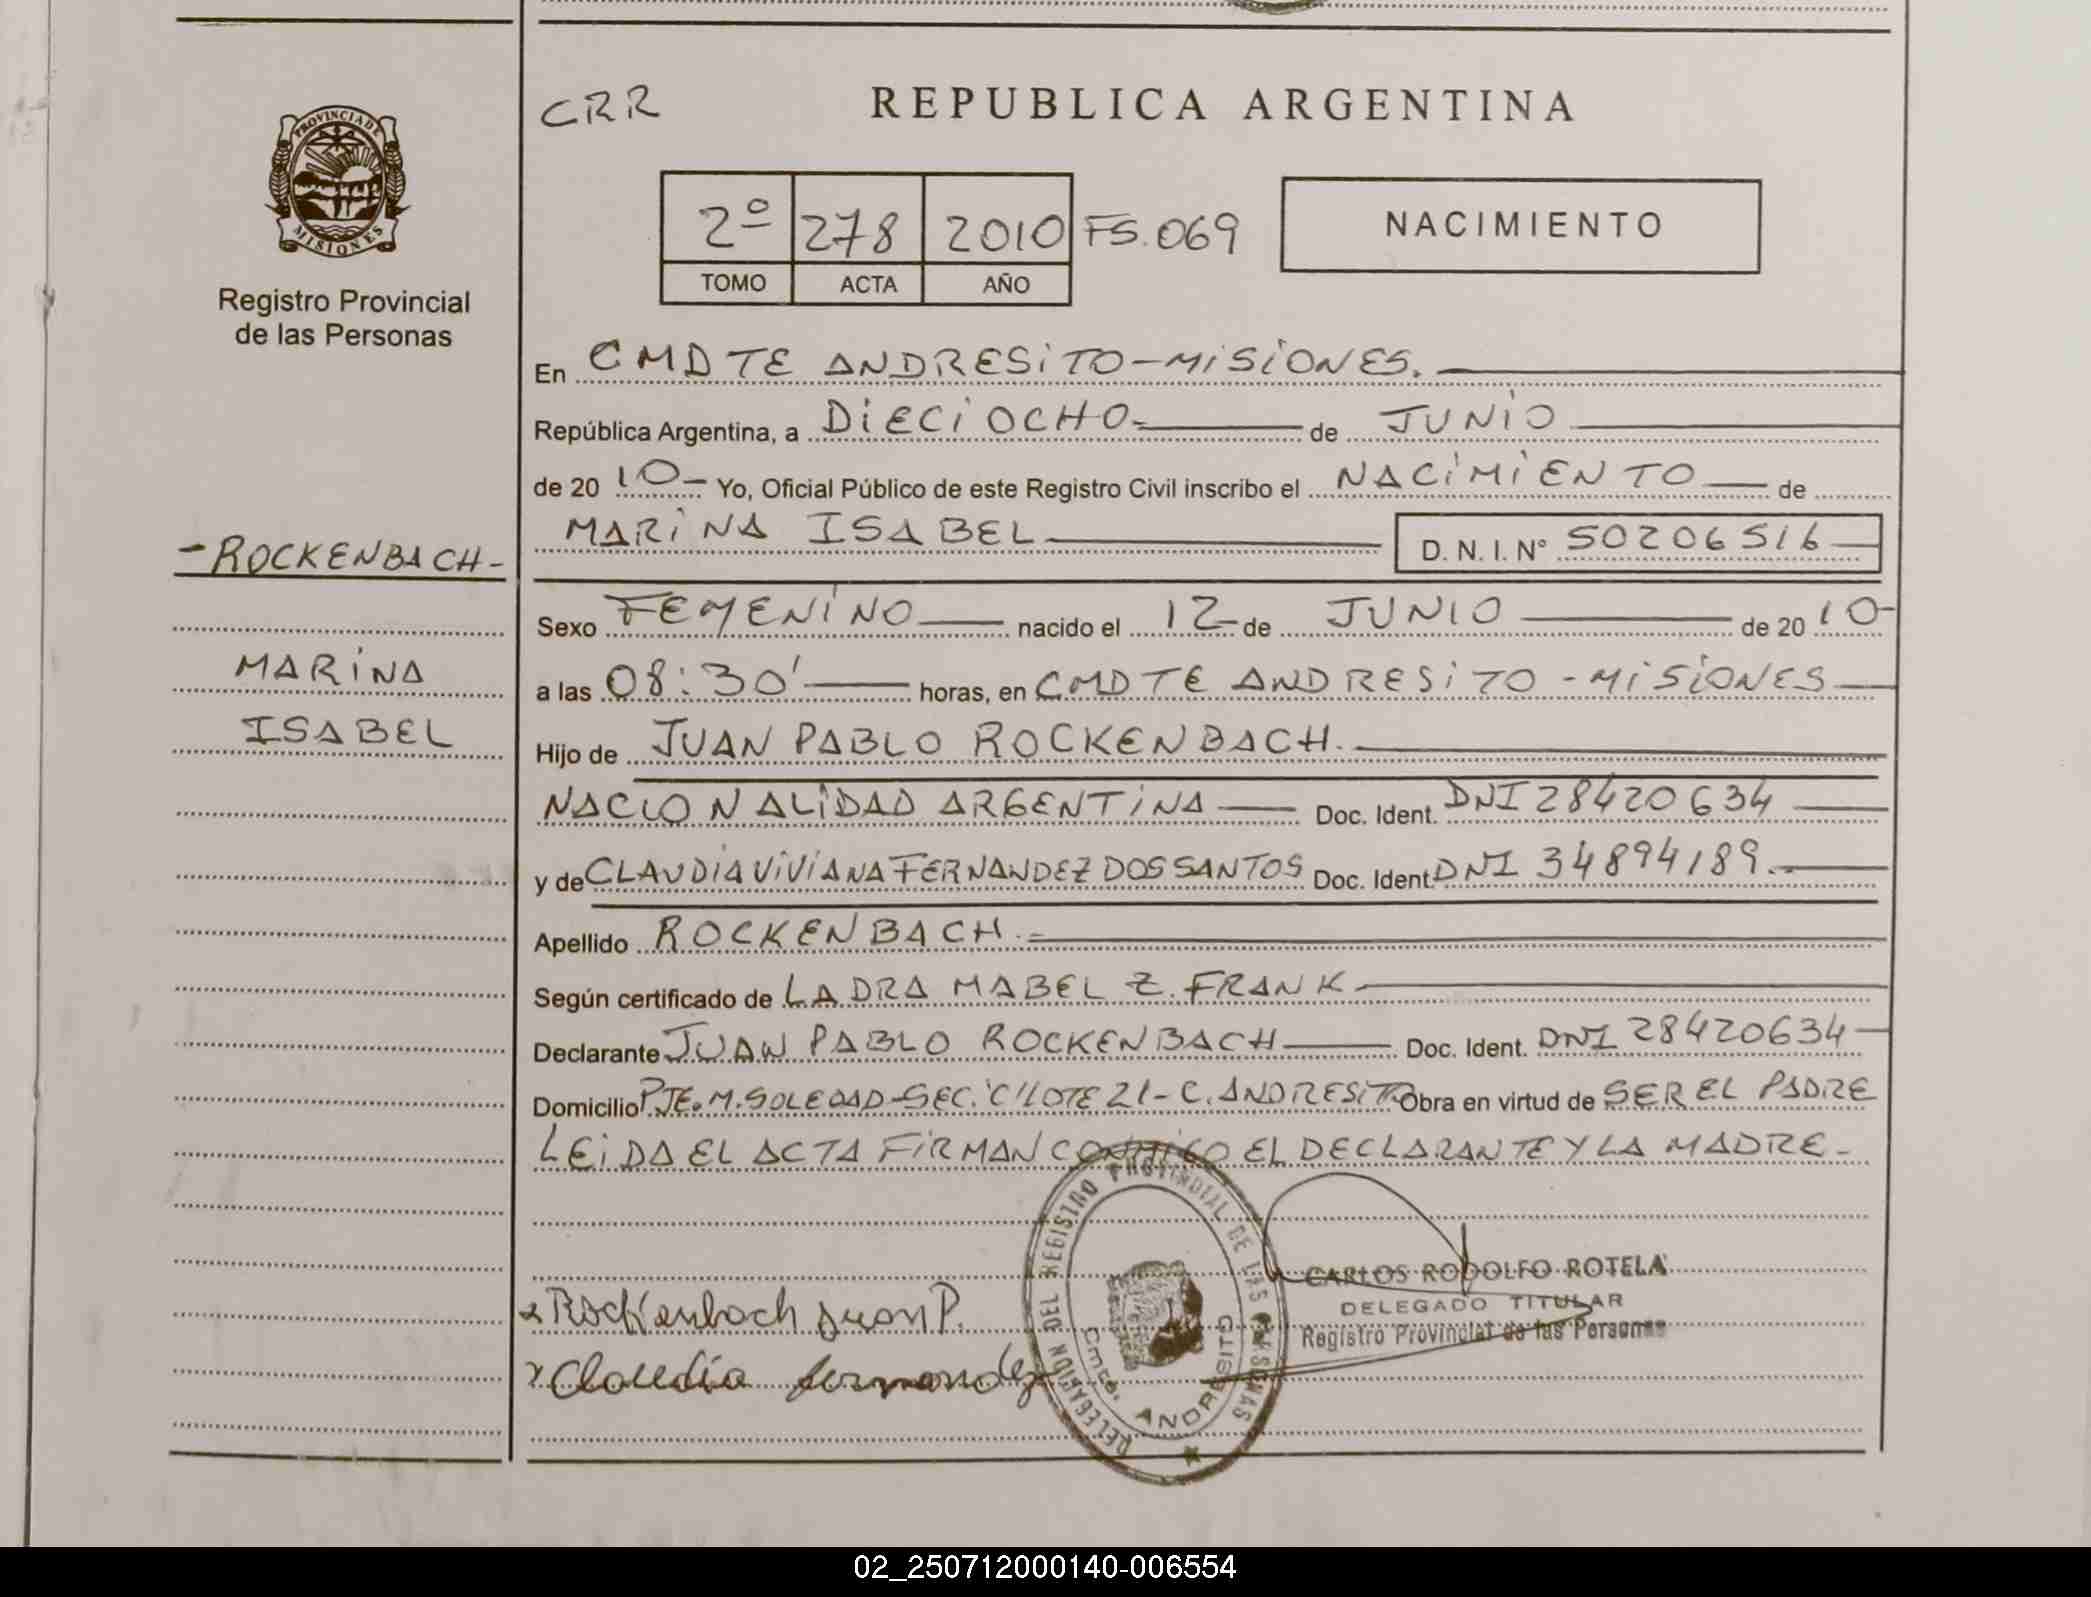 CRR
REPUBLICA ARGENTINA
PROVINCIA DE
MISIONES
Registro Provincial
de las Personas
2º 278 2010 FS. 069
TOMO ACTA AÑO
NACIMIENTO
En CMDTE ANDRESITO - MISIONES.
República Argentina, a DIECIOCHO de JUNIO
de 20 10 - Yo, Oficial Público de este Registro Civil inscribo el NACIMIENTO de
MARINA ISABEL D. N. I. N° 50206516
- ROCKENBACH -
MARINA
ISABEL
Sexo FEMENINO nacido el 12 de JUNIO de 20 10 -
a las 08:30' horas, en CMDTE ANDRESITO - MISIONES
Hijo de JUAN PABLO ROCKENBACH.
NACIONALIDAD ARGENTINA Doc. Ident. DNI 28420634
y de CLAUDIA VIVIANA FERNANDEZ DOS SANTOS Doc. Ident. DNI 34894189.
Apellido ROCKENBACH. -
Según certificado de LA DRA MABEL Z. FRANK
Declarante JUAN PABLO ROCKENBACH Doc. Ident. DNI 28420634
Domicilio PJE. M. SOLEDAD - SEC. 'C' LOTE 21 - C. ANDRESITO Obra en virtud de SER EL PADRE
LEIDA EL ACTA FIRMAN CONMIGO EL DECLARANTE Y LA MADRE -
DELEGACIÓN DEL REGISTRO PROVINCIAL DE LAS PERSONAS
Cmte. ANDRESITO
CARLOS RODOLFO ROTELA
DELEGADO TITULAR
Registro Provincial de las Personas
Rockenbach Juan P.
Claudia fernandez
02_250712000140-006554